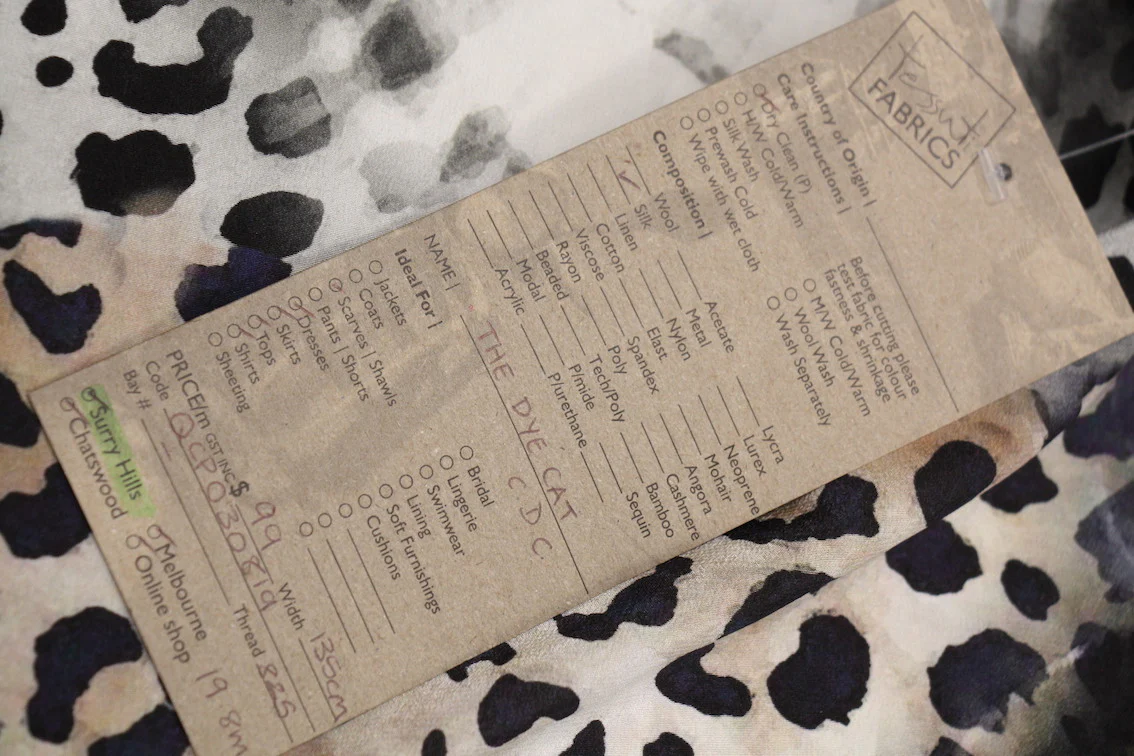 Tessuti
FABRICS
Country of Origin |
Care Instructions |
Dry Clean (P)
H/W Cold/Warm
Silk Wash
Prewash Cold
Wipe with wet cloth
Before cutting please
test fabric for colour
fastness & shrinkage
M/W Cold/Warm
Wool Wash
Wash Separately
Composition |
Wool
✓ Silk
Linen
Cotton
Viscose
Rayon
Beaded
Modal
Acrylic
Acetate
Metal
Nylon
Elast
Spandex
Poly
Tech/Poly
P/mide
P/urethane
Lycra
Lurex
Neoprene
Mohair
Angora
Cashmere
Bamboo
Sequin
NAME | THE DYE CAT
C D C.
Ideal For |
Jackets
Coats
Scarves | Shawls
Pants | Shorts
Dresses
Skirts
Tops
Shirts
Sheeting
Bridal
Lingerie
Swimwear
Lining
Soft Furnishings
Cushions
PRICE/m GST INC. $ 99 Width 135cm
Code QCP030819 Thread 885
Bay #
Surry Hills
Chatswood
Melbourne
Online shop
19.8m